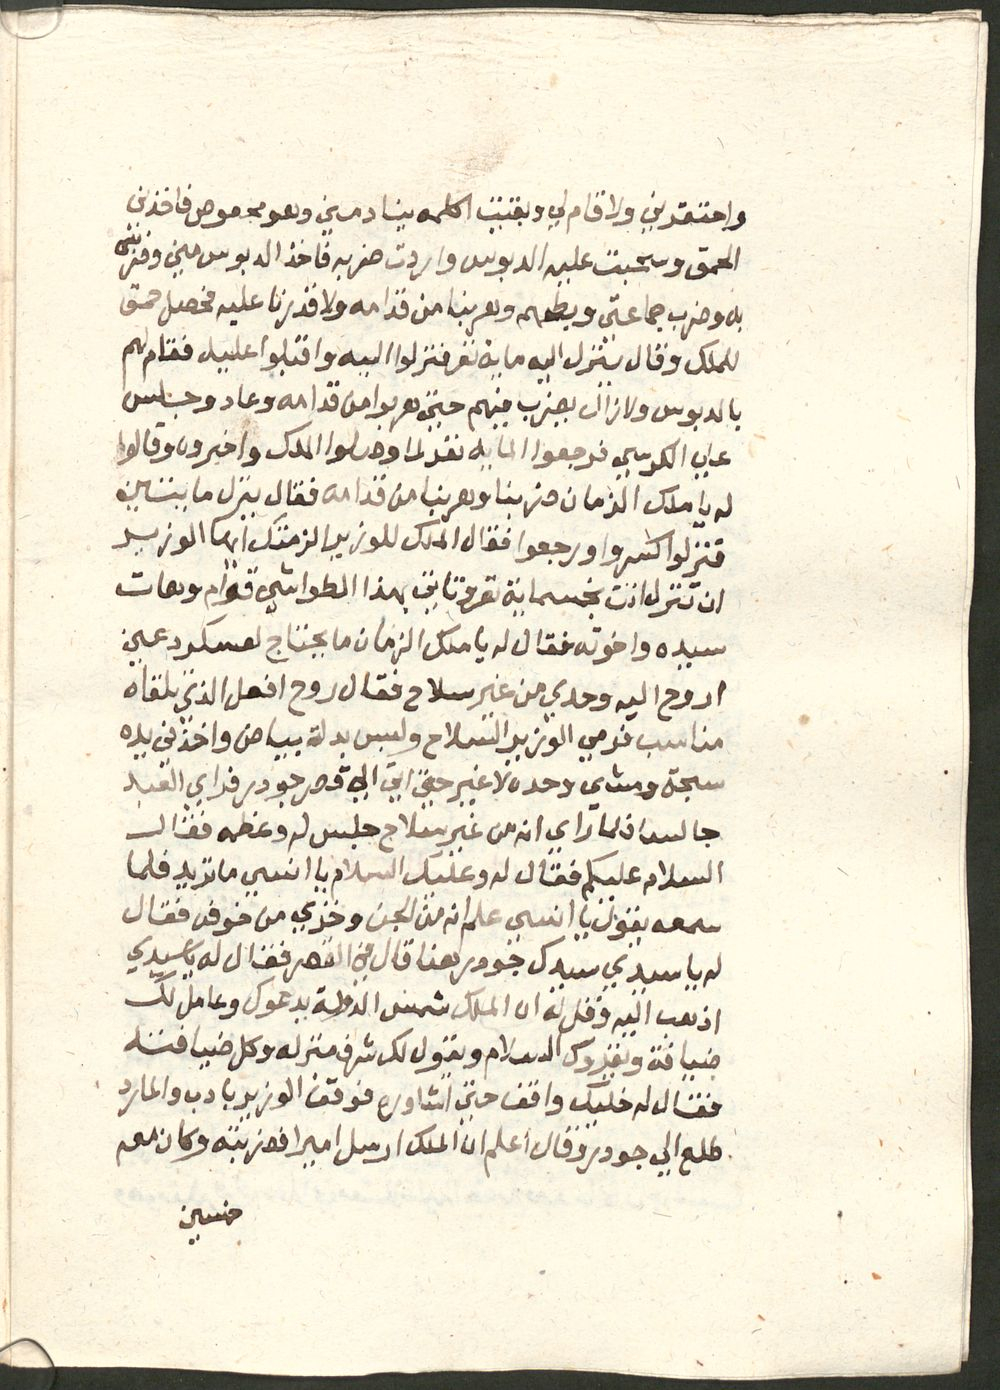 واحتقرني ولا قام لي وبقيت اكلمه ينادمني وهو مجعوص فاخذني
الحمق وسحبت عليه الدبوس واردت ضربه فاخذ الدبوس مني وضربني
به وضرب جماعتي وبطحهم وهربنا من قدامه ولا قدرنا عليه فحصل حمق
للملك وقال ينزل اليه ماية نفر فنزلوا اليه واقبلوا عليه فقام لهم
بالدبوس ولازال يضرب فيهم حتي هربوا من قدامه وعاد وجلس
علي الكرسي فرجعوا الماية نفر لما وصلوا الملك واخبروه وقالوا
له يا ملك الزمان ضربنا وهربنا من قدامه فقال ينزل مايتين
فنزلوا كسروا ورجعوا فقال الملك للوزير الزمتك ايها الوزير
ان تنزل انت بخسماية نفر وتاتي بهذا الطواشي قوام وهات
سيده واخوته فقال له يا ملك الزمان ما يحتاج لعسكر دعني
اروح اليه وحدي من غير سلاح فقال روح افعل الذي تلقاه
مناسب فرمي الوزير السلاح ولبس بدلة بياض واخذ في يده
سبحة ومشي وحده لا غير حتي اتي الي قصر جودر فراي العبد
جالسا فلما راي انه من غير سلاح جلس له وعظمه فقال
السلام عليكم فقال له وعليك السلام يا انسي ما تريد فلما
سمعه يقول يا انسي علم انه من الجن وخزي من خوفه فقال
له يا سيدي سيدك جودر هنا قال في القصر فقال له يا سيدي
اذهب اليه وقل له ان الملك شمس الدولة يدعوك وعامل لك
ضيافة ويقروك السلام ويقول لك شرف منزله وكل ضيافته
فقال له خليك واقف حتي اشاوره فوقف الوزير بادب والمارد
طلع الي جودر وقال اعلم ان الملك ارسل اميرا فضربته وكان معه
خمسين